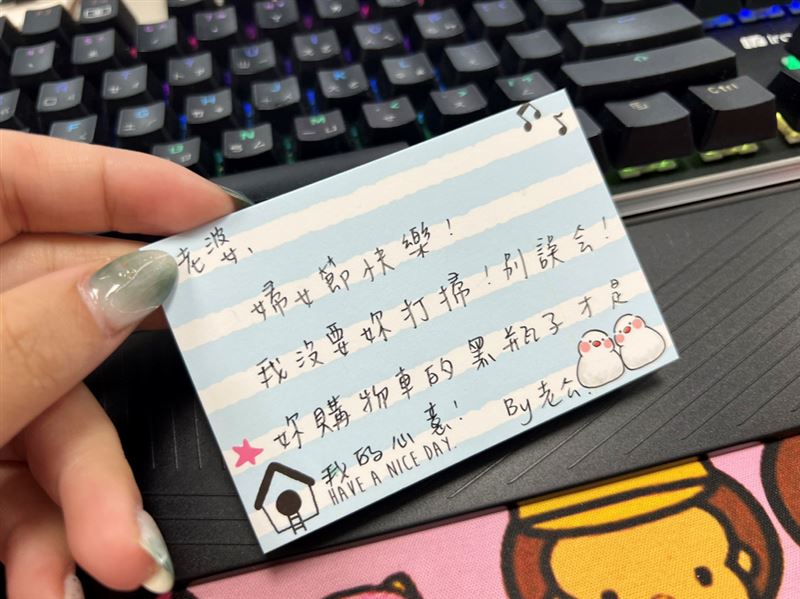 老婆,
婦女節快樂!
我沒要妳打掃!別誤会!
妳購物車的黑瓶子才是
我的心意! By老公.
HAVE A NICE DAY.
Ctrl